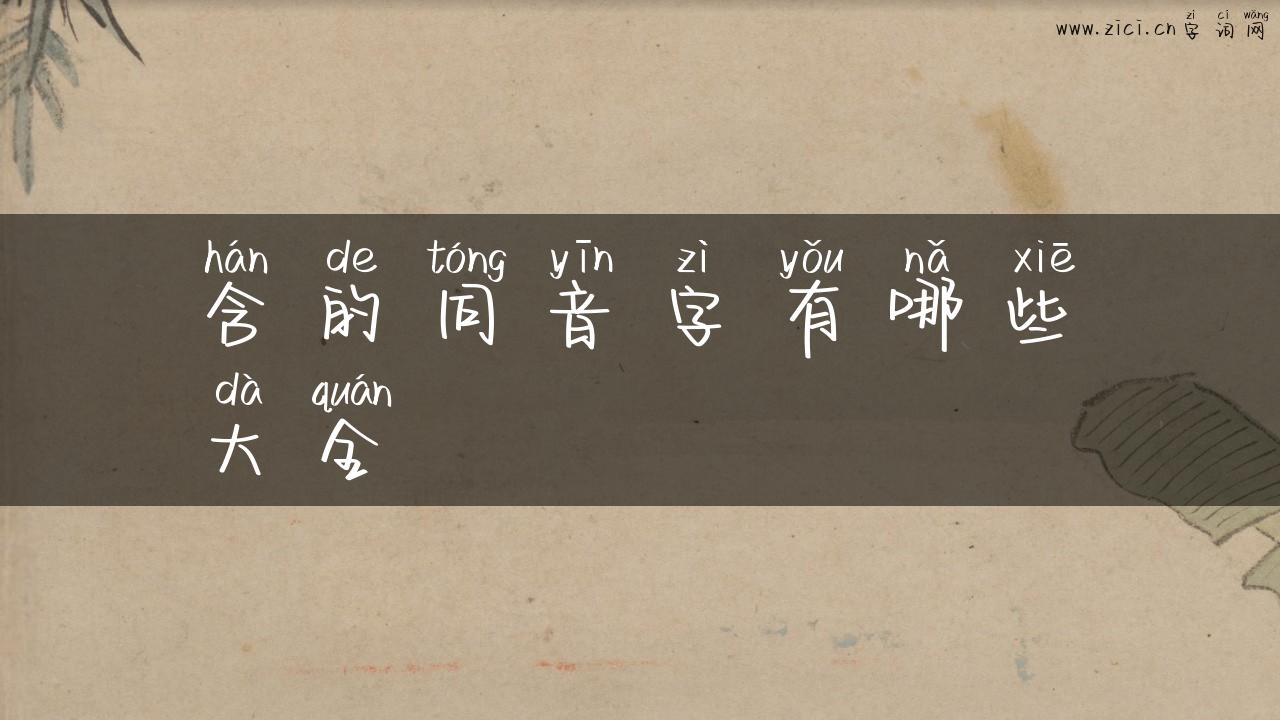 zì cí wǎng
www.zici.cn 字词网
hán de tóng yīn zì yǒu nǎ xiē
含的同音字有哪些
dà quán
大全